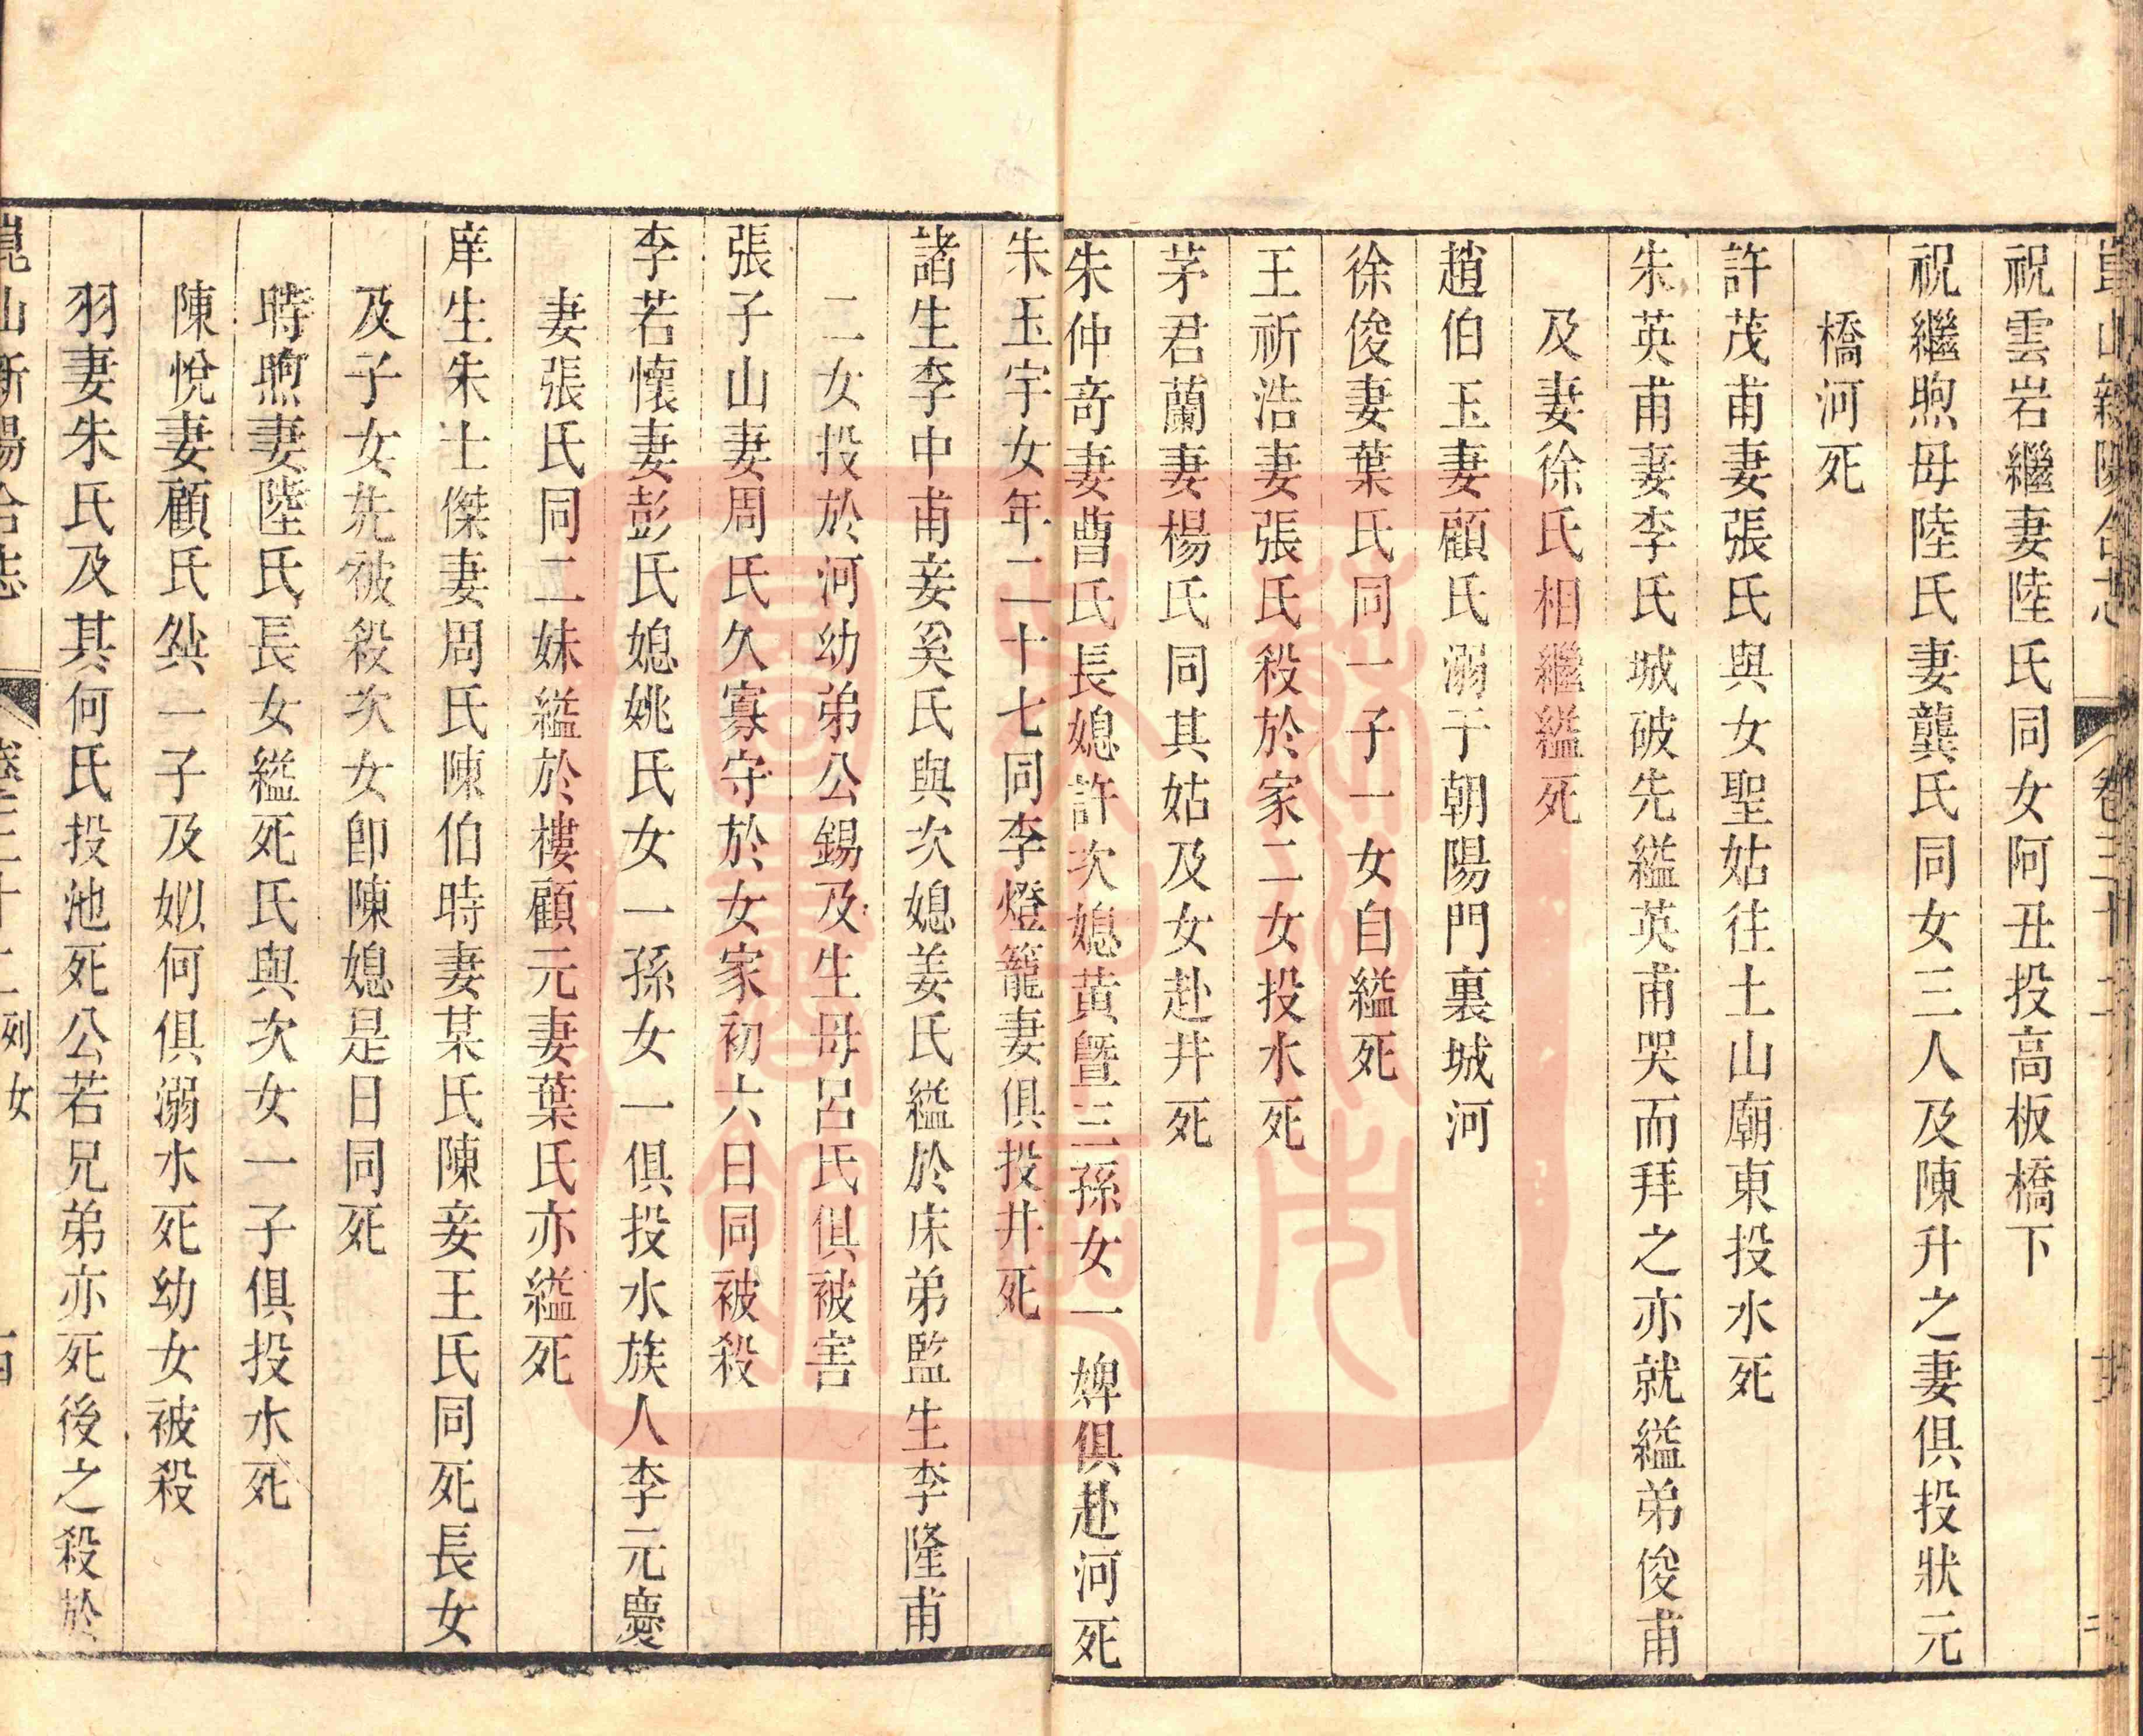 崑山新陽合志
卷三十二
祝雲岩繼妻陸氏同女阿丑投高板橋下
祝繼煦母陸氏妻龔氏同女三人及陳升之妻俱投狀元
橋河死
許茂甫妻張氏與女聖姑往土山廟東投水死
朱英甫妻李氏城破先縊英甫哭而拜之亦就縊弟俊甫
及妻徐氏相繼縊死
趙伯玉妻顧氏溺于朝陽門裏城河
徐俊妻葉氏同一子一女自縊死
王祈浩妻張氏殺於家二女投水死
茅君蘭妻楊氏同其姑及女赴井死
朱仲奇妻曹氏長媳許次媳黃暨三孫女一婢俱赴河死
朱玉宇女年二十七同李燈籠妻俱投井死
諸生李中甫妾奚氏與次媳姜氏縊於床弟監生李隆甫
二女投於河幼弟公錫及生母呂氏俱被害
張子山妻周氏久寡守於女家初六日同被殺
李若懷妻彭氏媳姚氏女一孫女一俱投水族人李元慶
妻張氏同二妹縊於樓顧元妻葉氏亦縊死
庠生朱士傑妻周氏陳伯時妻某氏陳妾王氏同死長女
及子女先被殺次女卽陳媳是日同死
時煦妻陸氏長女縊死氏與次女一子俱投水死
陳悅妻顧氏與一子及姒何俱溺水死幼女被殺
羽妻朱氏及其何氏投池死公若兄弟亦死後之殺於
崑山新陽合志
卷三十二列女